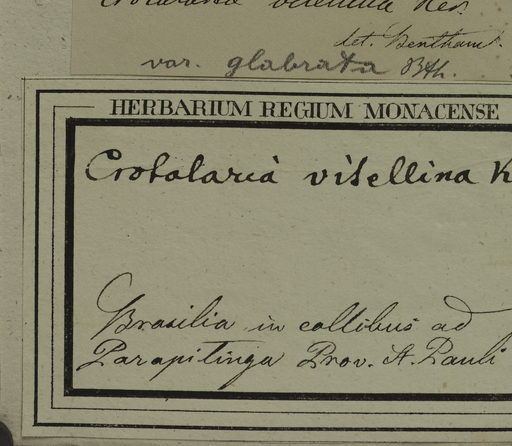 Crotalaria vitellina Ker.
det. Bentham.
var. glabrata Bth.
HERBARIUM REGIUM MONACENSE
Crotalaria vitellina K
Brasilia in collibus ad
Parapitinga Prov. S. Pauli